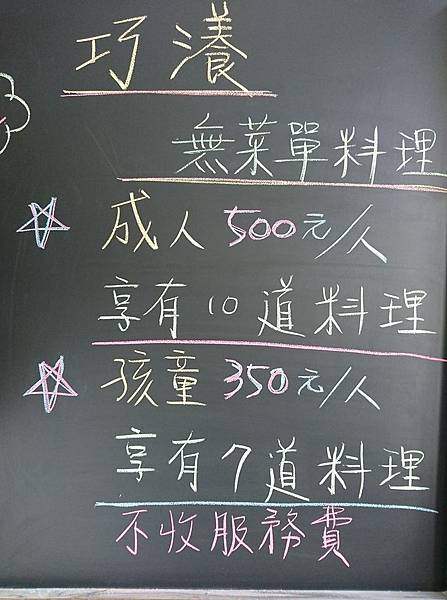 巧瀁
無菜單料理
成人500元/人
享有10道料理
孩童350元/人
享有7道料理
不收服務費